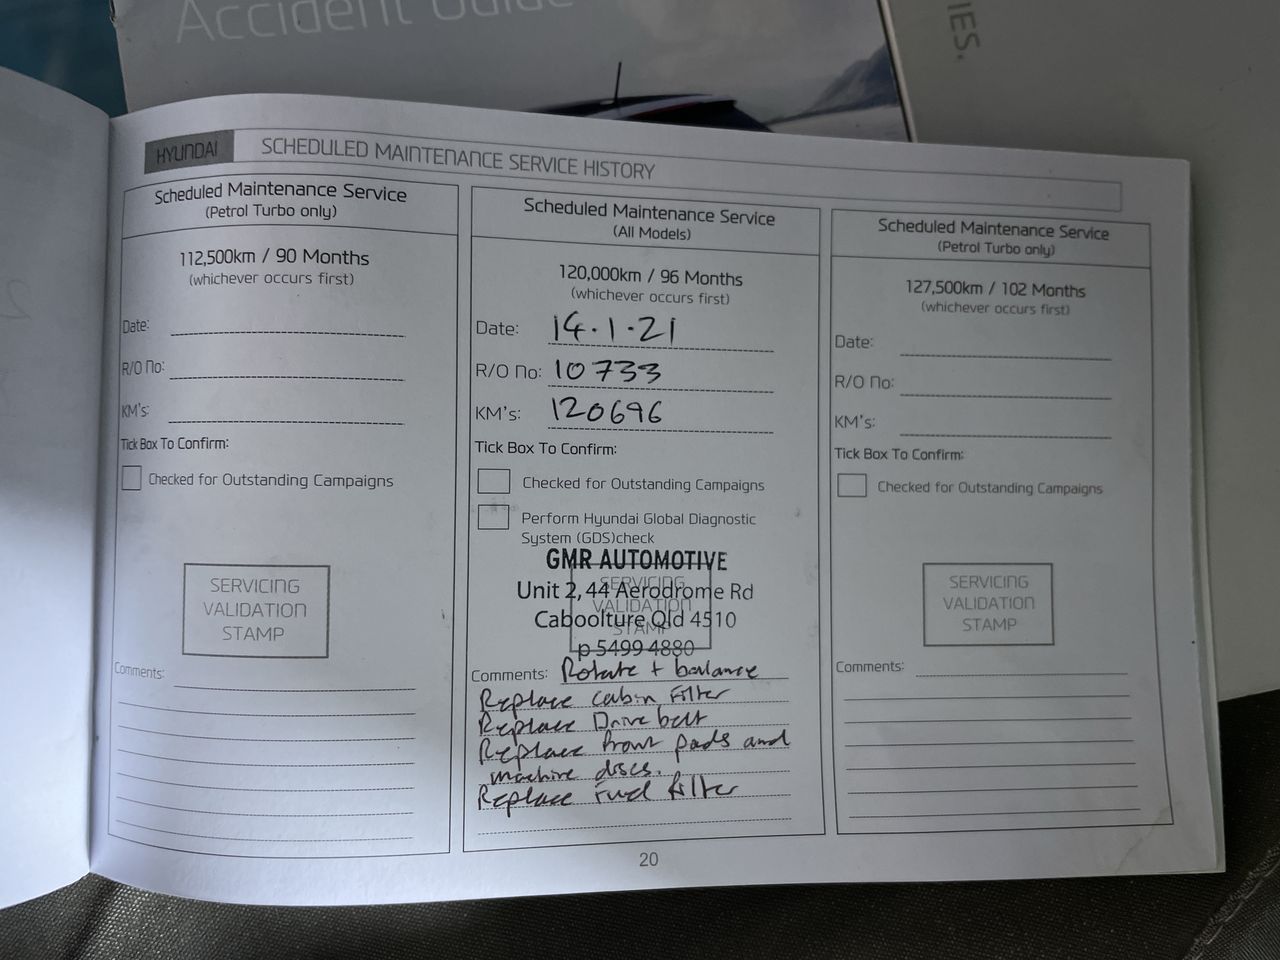 Accident Guide
IES.
HYUNDAI
SCHEDULED MAINTENANCE SERVICE HISTORY
Scheduled Maintenance Service
(Petrol Turbo only)
112,500km / 90 Months
(whichever occurs first)
Date:
R/O No:
KM's:
Tick Box To Confirm:
Checked for Outstanding Campaigns
SERVICING
VALIDATION
STAMP
Comments:
Scheduled Maintenance Service
(All Models)
120,000km / 96 Months
(whichever occurs first)
Date: 14.1.21
R/O No: 10733
KM's: 120696
Tick Box To Confirm:
Checked for Outstanding Campaigns
Perform Hyundai Global Diagnostic
System (GDS)check
GMR AUTOMOTIVE
SERVICING
Unit 2, 44 Aerodrome Rd
VALIDATION
Caboolture Qld 4510
STAMP
p 5499 4880
Comments: Rotate + balance
Replace cabin filter
Replace Drive belt
Replace front pads and
machine discs.
Replace Fuel filter
Scheduled Maintenance Service
(Petrol Turbo only)
127,500km / 102 Months
(whichever occurs first)
Date:
R/O No:
KM's:
Tick Box To Confirm:
Checked for Outstanding Campaigns
SERVICING
VALIDATION
STAMP
Comments:
20